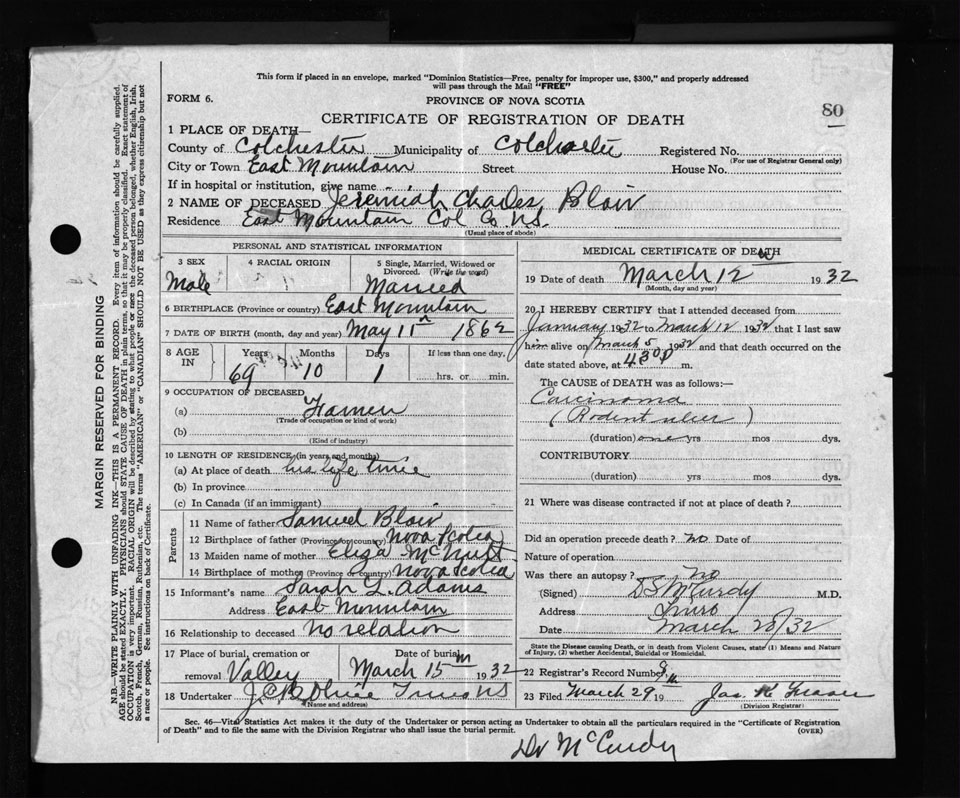 This form if placed in an envelope, marked "Dominion Statistics—Free, penalty for improper use, $300," and properly addressed
will pass through the Mail "FREE"
FORM 6.
PROVINCE OF NOVA SCOTIA
80
CERTIFICATE OF REGISTRATION OF DEATH
1 PLACE OF DEATH—
County of Colchester Municipality of Colchester Registered No.
(For use of Registrar General only)
City or Town East Mountain Street House No.
If in hospital or institution, give name
2 NAME OF DECEASED Jeremiah Charles Blair
Residence East Mountain Col Co N.S.
(Usual place of abode)
PERSONAL AND STATISTICAL INFORMATION
3 SEX
Male
4 RACIAL ORIGIN
5 Single, Married, Widowed or
Divorced. (Write the word)
Married
6 BIRTHPLACE (Province or country) East Mountain
7 DATE OF BIRTH (month, day and year) May 11th 1862
8 AGE
IN
Years Months Days If less than one day.
69 10 1 hrs. or min.
9 OCCUPATION OF DECEASED
(a) Farmer
(Trade or occupation or kind of work)
(b)
(Kind of industry)
10 LENGTH OF RESIDENCE (in years and months)
(a) At place of death his life time
(b) In province
(c) In Canada (if an immigrant)
Parents
11 Name of father Samuel Blair
12 Birthplace of father (Province or country) Nova Scotia
13 Maiden name of mother Eliza McNutt
14 Birthplace of mother (Province or country) Nova Scotia
15 Informant's name Sarah L. Adams
Address East Mountain
16 Relationship to deceased no relation
17 Place of burial, cremation or
removal Valley
Date of burial
March 15th 1932
18 Undertaker Truro NS
(Name and address)
MEDICAL CERTIFICATE OF DEATH
19 Date of death March 12th 1932
(Month, day and year)
20 I HEREBY CERTIFY that I attended deceased from
January 1932 to March 12 1932 that I last saw
him alive on March 5 1932 and that death occurred on the
date stated above, at 4.30 P m.
The CAUSE of DEATH was as follows:—
Carcinoma
(Rodent ulcer)
(duration) one yrs mos dys.
CONTRIBUTORY
(duration) yrs mos dys.
21 Where was disease contracted if not at place of death?
Did an operation precede death? no Date of
Nature of operation
Was there an autopsy? no
(Signed) D S McCurdy M.D.
Address Truro
Date March 28/32
State the Disease causing Death, or in death from Violent Causes, state (1) Means and Nature
of Injury, (2) whether Accidental, Suicidal or Homicidal.
22 Registrar's Record Number
23 Filed March 29th 19 Jas K Fraser
(Division Registrar)
Sec. 46—Vital Statistics Act makes it the duty of the Undertaker or person acting as Undertaker to obtain all the particulars required in the "Certificate of Registration
of Death" and to file the same with the Division Registrar who shall issue the burial permit.
(OVER)
Dr McCurdy
MARGIN RESERVED FOR BINDING
N.B.—WRITE PLAINLY WITH UNFADING INK—THIS IS A PERMANENT RECORD. Every item of information should be carefully supplied.
AGE should be stated EXACTLY. PHYSICIANS should STATE CAUSE OF DEATH in plain terms, so that it may be properly classified. Exact statement of
OCCUPATION is very important. RACIAL ORIGIN will be described by stating to what people or race the deceased person belonged, whether English, Irish,
Scotch, French, German, Russian, Ruthenian, etc. The terms "AMERICAN" or "CANADIAN" SHOULD NOT BE USED as they express citizenship but not
a race or people. See instructions on back of Certificate.